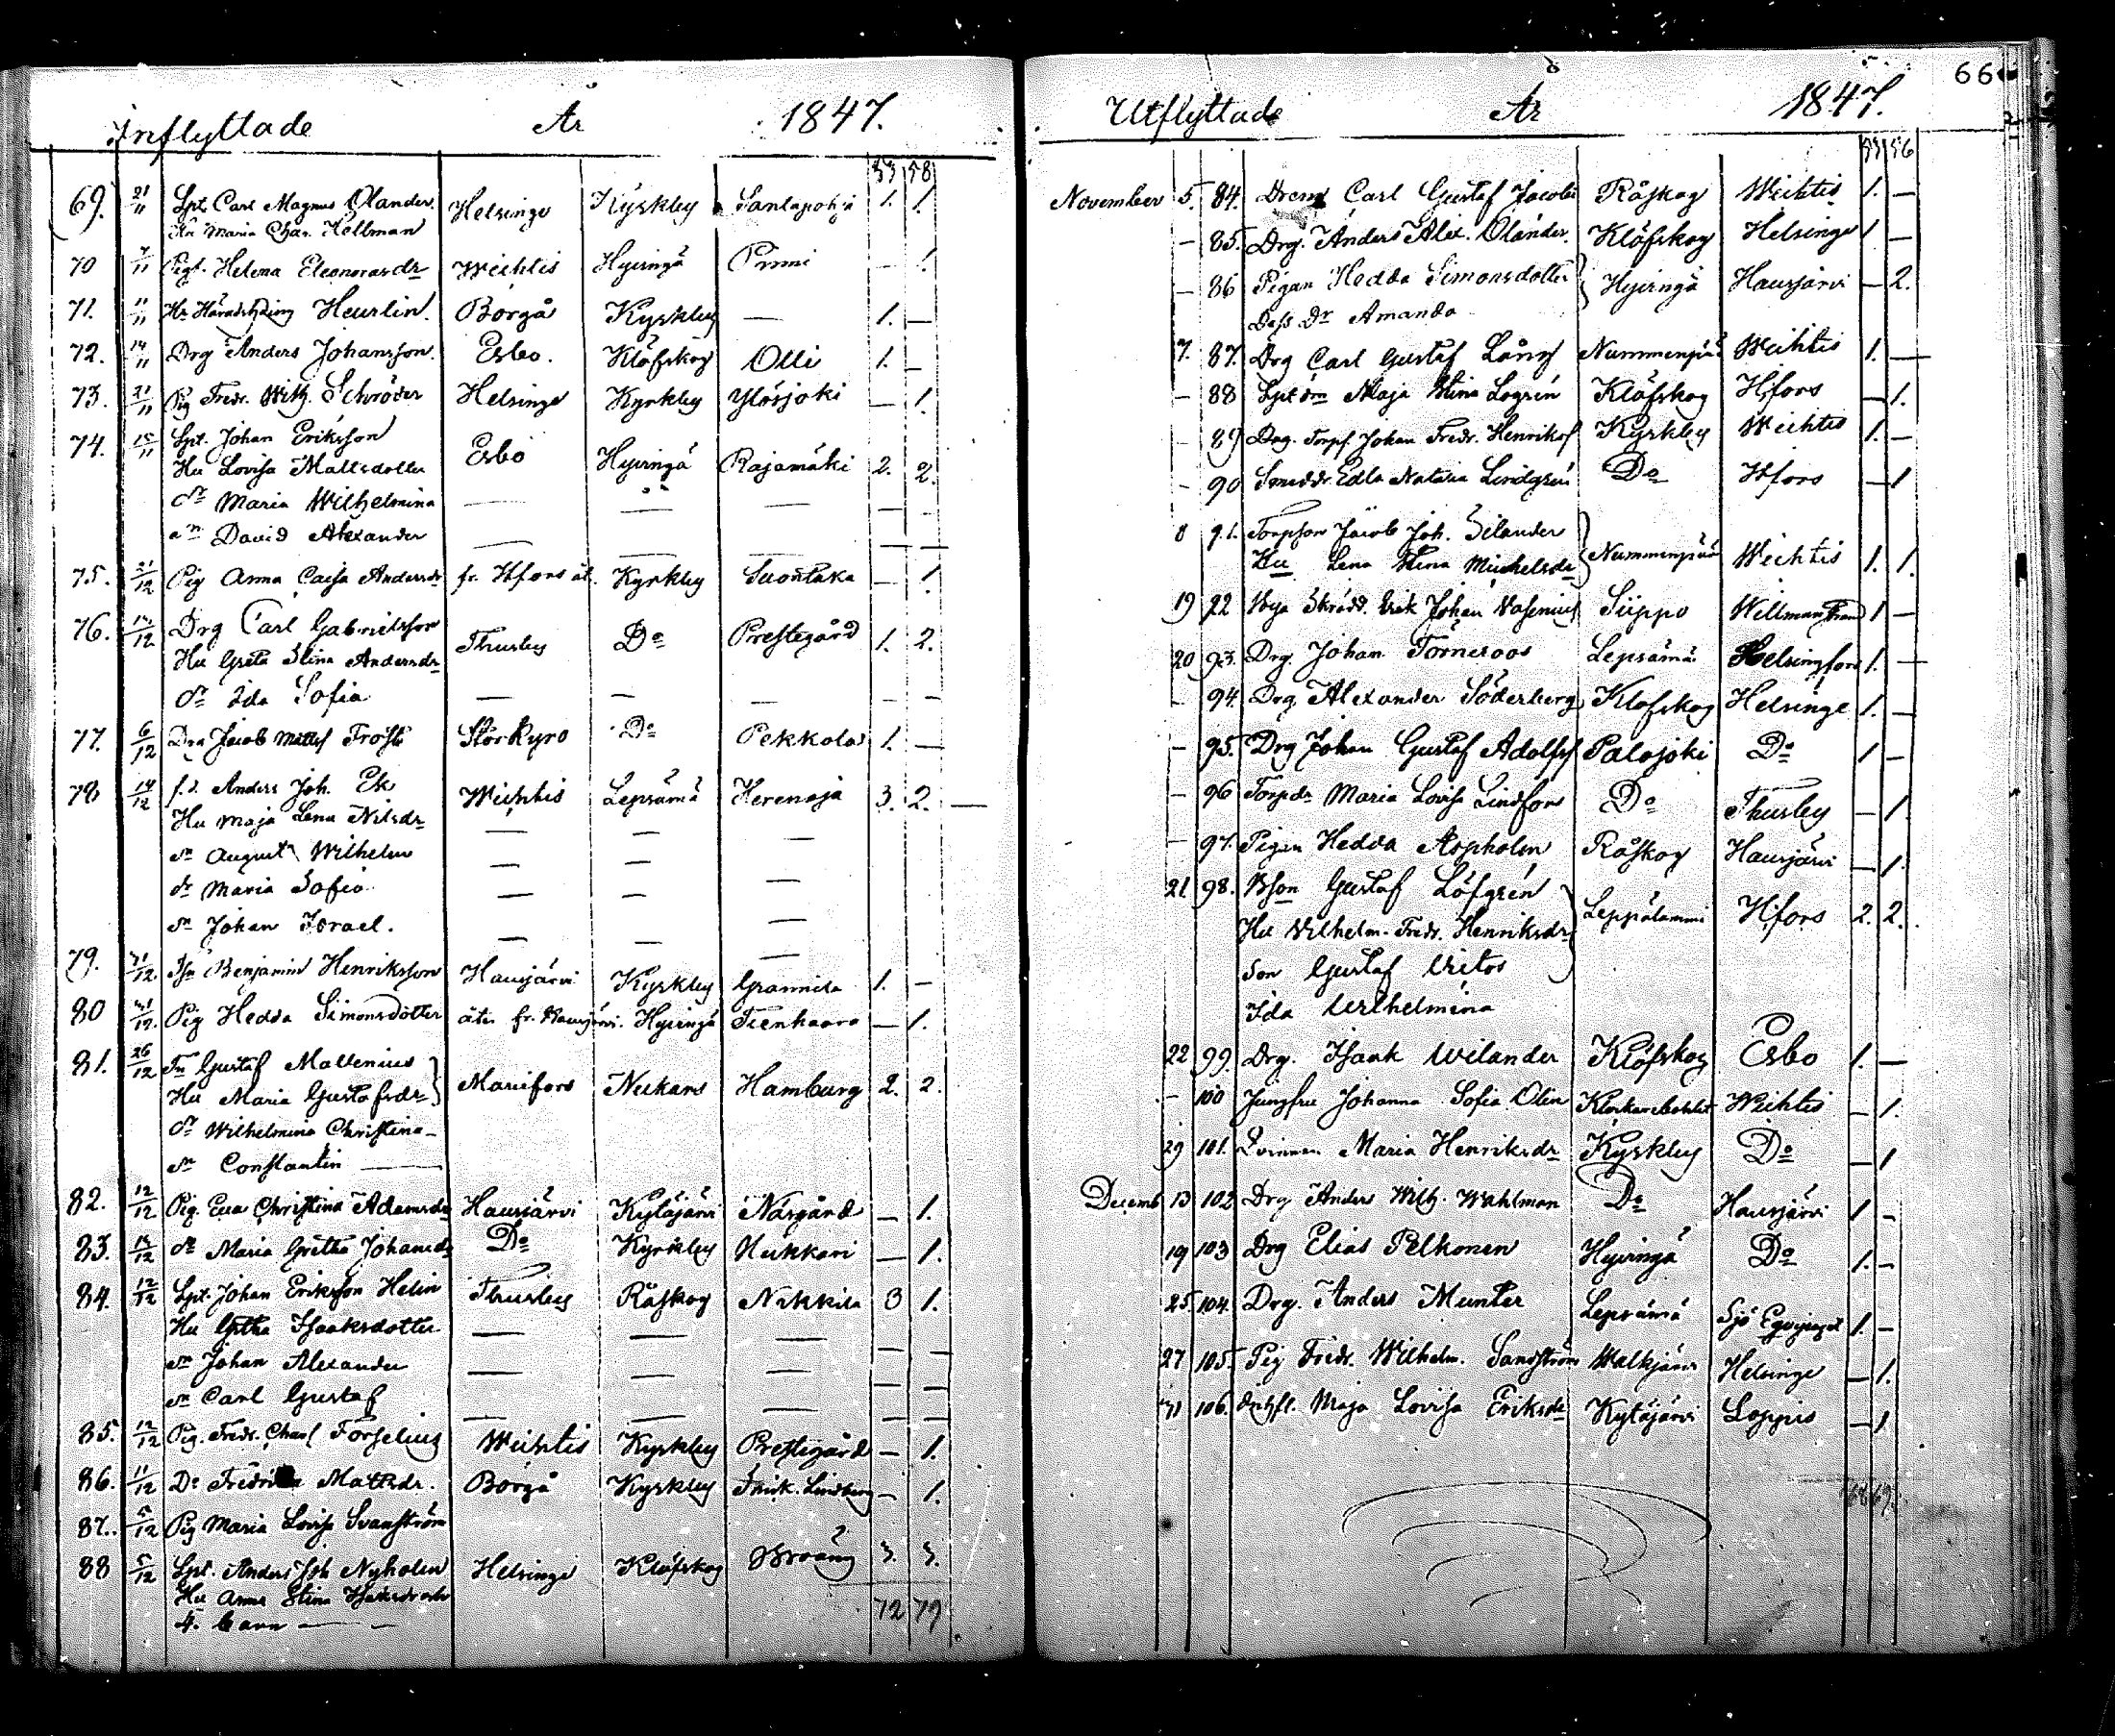 66
Inflyttade År 1847.
53 58
69. 21/11 Spt. Carl Magnus Olander Helsinge Kyrkby Santapohja 1. 1.
Hu Maria Char. Hellman
70 7/11 Pigt. Helena Eleonorasdr Wichtis Hyvingä Prini — 1.
71. 11/11 Hr Häradshöding Heurlin. Borgå Kyrkby — 1. —
72. 14/11 Drg Anders Johansson. Esbo. Klöfskog Olli 1. —
73. 21/11 Pig Fredr. Wilh. Schröder Helsinge Kyrkby Ylösjoki — 1.
74. 15/11 Spt. Johan Eriksson
Hu Lovisa Mattsdotter Esbo Hyvingä Rajamäki 2. 2.
dr Maria Wilhelmina — — — —
sn David Alexander — — — — —
75. 31/12 Pig Anna Caisa Andersdr fr. Hfors åt. Kyrkby Suontaka — 1.
76. 12/12 Drg Carl Gabrielsson Thusby Do Prestegård 1. 2.
Hu Greta Stina Andersdr
dr Ida Sofia — — — — —
77. 6/12 Drg Jacob Matts Frost Storkyro Do Pekkola 1. —
78 14/12 f.d. Anders Joh. Ek Wichtis Lepsämä Herenoja 3. 2. —
Hu Maja Lena Nilsdr — — —
sn August Wilhelm — — —
dr Maria Sofia — — —
sn Johan Israel. — — —
79. 31/12. Benjamin Henriksson Hausjärvi Kyrkby Grannila 1. —
80 31/12. Pig Hedda Simonsdotter åter fr. Hausjärvi. Hyvingä Tienhaara — 1.
81. 26/12 Gustaf Mallenius
Hu Maria Gustafsdr Mariefors Neckars Hamburg 2. 2.
dr Wilhelmina Christina —
sn Constantin —
82. 12/12 Pig. Eva Christina Adamsdr Hausjärvi Kytäjärvi Näsgård — 1.
83. 12/12 do Maria Gretha Johansdr Do Kyrkby Heikkari — 1.
84. 12/12 Spt. Johan Eriksson Helin Thusby Råskog Nikkilä 3 1.
Hu Gretha Isaaksdotter — — — — —
sn Johan Alexander — — — — —
sn Carl Gustaf — — — — —
85. 12/12 Pig. Fredr. Charl Forselius Wichtis Kyrkby Prestegård — 1.
86. 11/12 Do Fredrika Mattsdr. Borgå Kyrkby Lindberg — 1.
87. 5/12 Pig Maria Lovisa Svanström
88 5/12 Spt. Anders Joh Nyholm Helsinge Klöfskog Broäng 3. 3.
Hu Anna Stina Isaksdr och
4. barn — —
72 79
Utflyttade År 1847.
53 56
November 5. 84. Dreng Carl Gustaf Jacobs Råskog Wichtis 1. —
— 85. Drg. Anders Alex. Olander. Klöfskog Helsinge 1 —
— 86 Pigan Hedda Simonsdotter Hyvingä Hausjärvi — 2.
Dess Dr Amanda
7. 87. Drg Carl Gustaf Lång Nummenpää Wichtis 1. —
— 88 Maja Stina Logrén Klöfskog Hfors — 1.
— 89 Drg. Torpf. Johan Fredr. Henriks Kyrkby Wichtis 1. —
— 90 Smeddr. Edla Natalia Lindgrén Do Hfors — 1
8 91. Torpson Jacob Joh. Silander
Hu Lena Stina Michelsdr Nummenpää Wichtis 1. 1.
19 92 Skrädd. Erik Johan Vasenius Siippo Willmanstrand 1 —
20 93. Drg. Johan Törneroos Lepsämä Helsingfors 1. —
— 94. Drg. Alexander Söderberg Klöfskog Helsinge 1. —
— 95. Drg Johan Gustaf Adolfs Palojoki Do 1 —
— 96 Torpdr Maria Lovisa Lindfors Do Thusby — 1.
— 97. Pigan Hedda Aspholm Råskog Hausjärvi — 1.
21 98. Bson Gustaf Löfgrén
Hu Vilhelm. Fredr. Henriksdr Leppälammi Hfors 2. 2.
Son Gustaf Vitos
Ida Wilhelmina
22 99. Drg. Isaak Wilander Klöfskog Esbo 1. —
— 100 Jungfru Johanna Sofia Olin Klockarebohlet Wichtis — 1.
29 101. Qvinnan Maria Henriksdr Kyrkby Do — 1
Decemb 13 102 Drg Anders Wilh. Wahlman Do Hausjärvi 1 —
19 103 Drg Elias Pelkonen Hyvingä Do 1. —
25. 104. Drg. Anders Munter Lepsämä Sjö Eqvipaget 1. —
27 105. Pig Fredr. Wilhelm. Sandström Walkjärvi Helsinge — 1.
31 106. Maja Lovisa Eriksdr Kytäjärvi Loppis — 1
68 69.